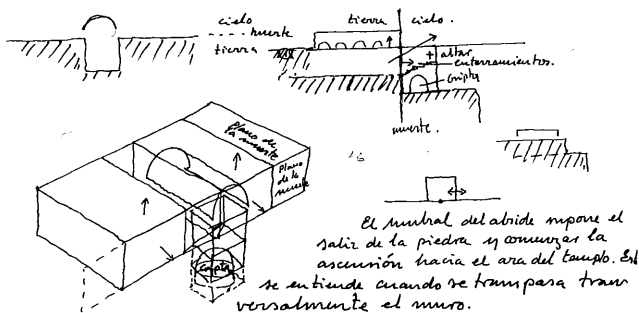 cielo
muerte
tierra
tierra
cielo.
altar
enterramientos.
Cripta
muerte.
Plano de
la muerte
Plano
de la
muerte
Cripta
El umbral del abside supone el
salir de la piedra y comenzar la
ascensión hacia el ara del templo.
se entiende cuando se transpasa trans
versalmente el muro.